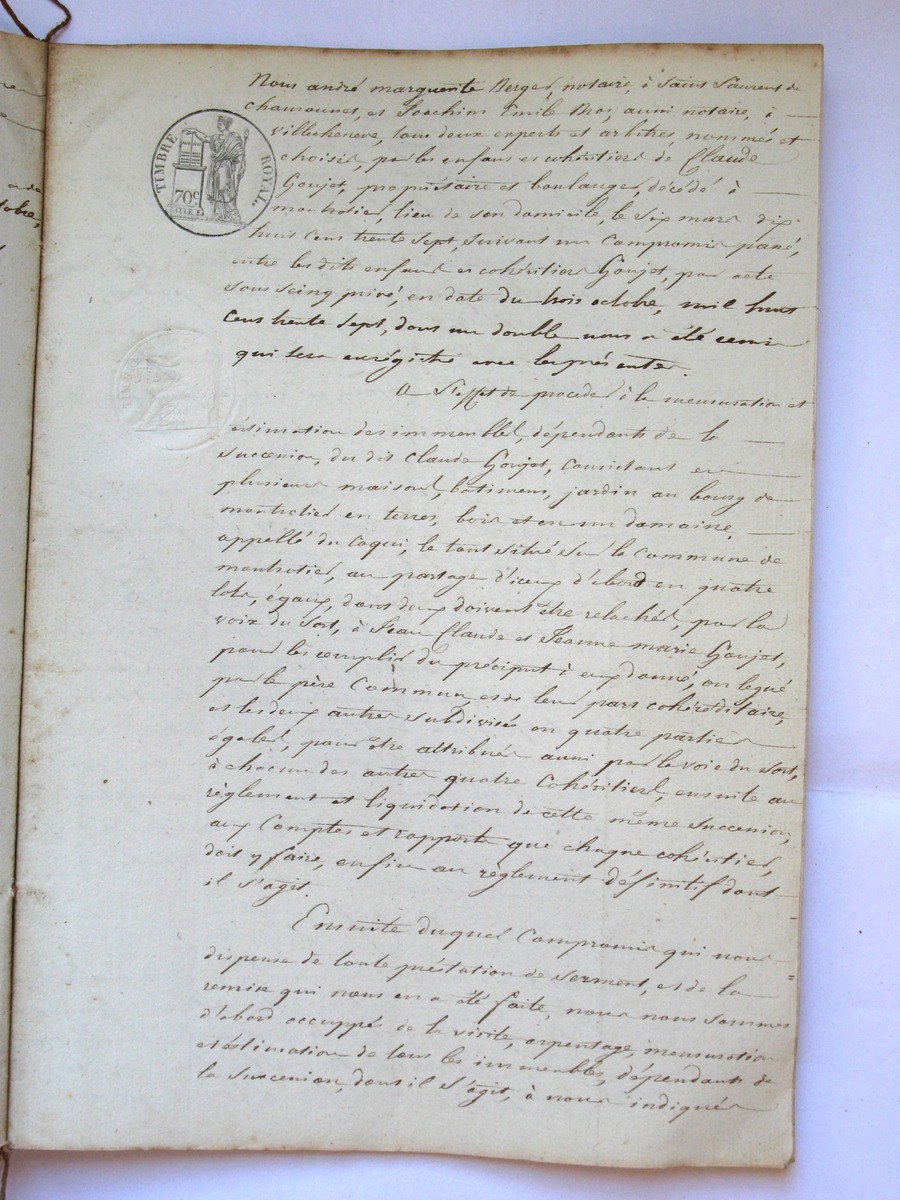 Nous andré marguerite Berger, notaire, à Saint Laurent de
chamousset, et Joachim Emile Bros, aussi notaire, à
villecheneve, tous deux experts et arbitres, nommés et
choisis, par les enfans et cohéritiers de Claude
Goujet, propriétaire et boulanger, décédé à
montrotier, lieu de son domicile, le six mars dix
huit cens trente sept, suivant un compromis passé,
entre les dits enfans et cohéritiers Goujet, par acte
sous seing privé, en date du trois octobre, mil huit
cens trente sept, dont un double nous a été remis
qui sera enrégistré avec les présentes.
a L'effet de proceder à la mensuration et
éstimation des immeubles, dépendants de la
succession, du dit Claude Goujet, consistant en
plusieurs maisons, batimens, jardin au bourg de
montrotier en terres, bois et en un domaine,
appellé du Coqui, le tout situé sur la commune de
montrotier, au partage d'iceux d'abord en quatre
lots, egaux, dont deux doivent être relachés, par la
voix du sort, à Jean Claude et Jeanne marie Goujet,
pour les remplir du préciput à eux donné, ou legué
par le père Commun, et de leur part cohéréditaire,
et les deux autres subdivisés en quatre parties
égales, pour être attribués aussi par la voie du sort,
à chacun des autres quatre Cohéritiers, ensuite au
règlement et liquidation de cette même succession,
aux Comptes et rapports que chaque cohéritier,
doit y faire, enfin au règlement définitif dont
il s'agit.
Ensuite duquel Compromis qui nous
dispense de toute préstation de serment, et de la
remise qui nous en a été faite, nous nous sommes
d'abord occuppés de la visite, arpentage, mensuration
et éstimation de tous les immeubles, dépendants de
la succession, dont il s'agit, à nous indiqués
TIMBRE ROYAL
70c